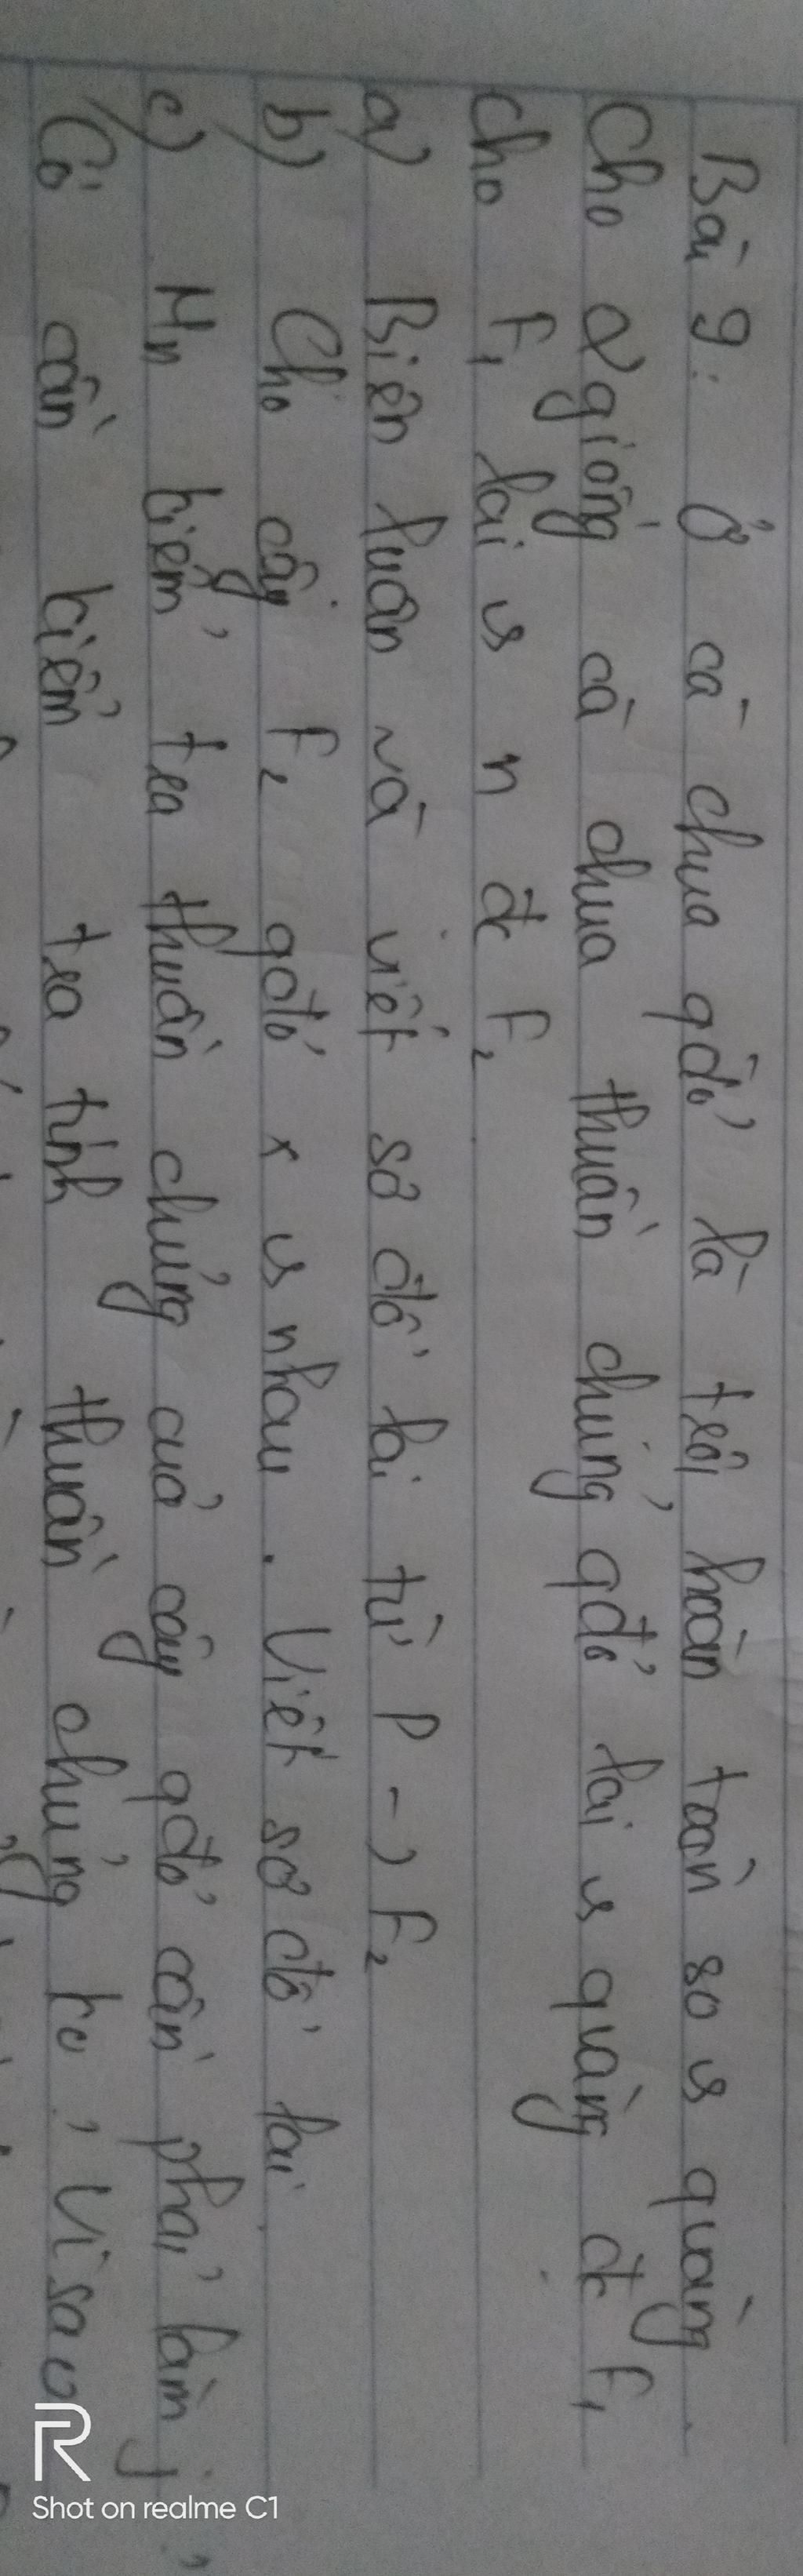 Bài 9: Ở cà chua qđỏ là trội hoàn toàn so vs quả vàng.
Cho 2 giống cà chua thuần chủng qđỏ lai vs qvàng đc F1
Cho F1 lai vs n đc F2
a) Biện luận và viết sơ đồ lai từ P -> F2
b) Cho cây F2 qđỏ x vs nhau. Viết sơ đồ lai
c) Mn kiểm tra thuần chủng của cây qđỏ cần phải làm j
Có cần kiểm tra tính thuần chủng ko, Vì sao
Shot on realme C1